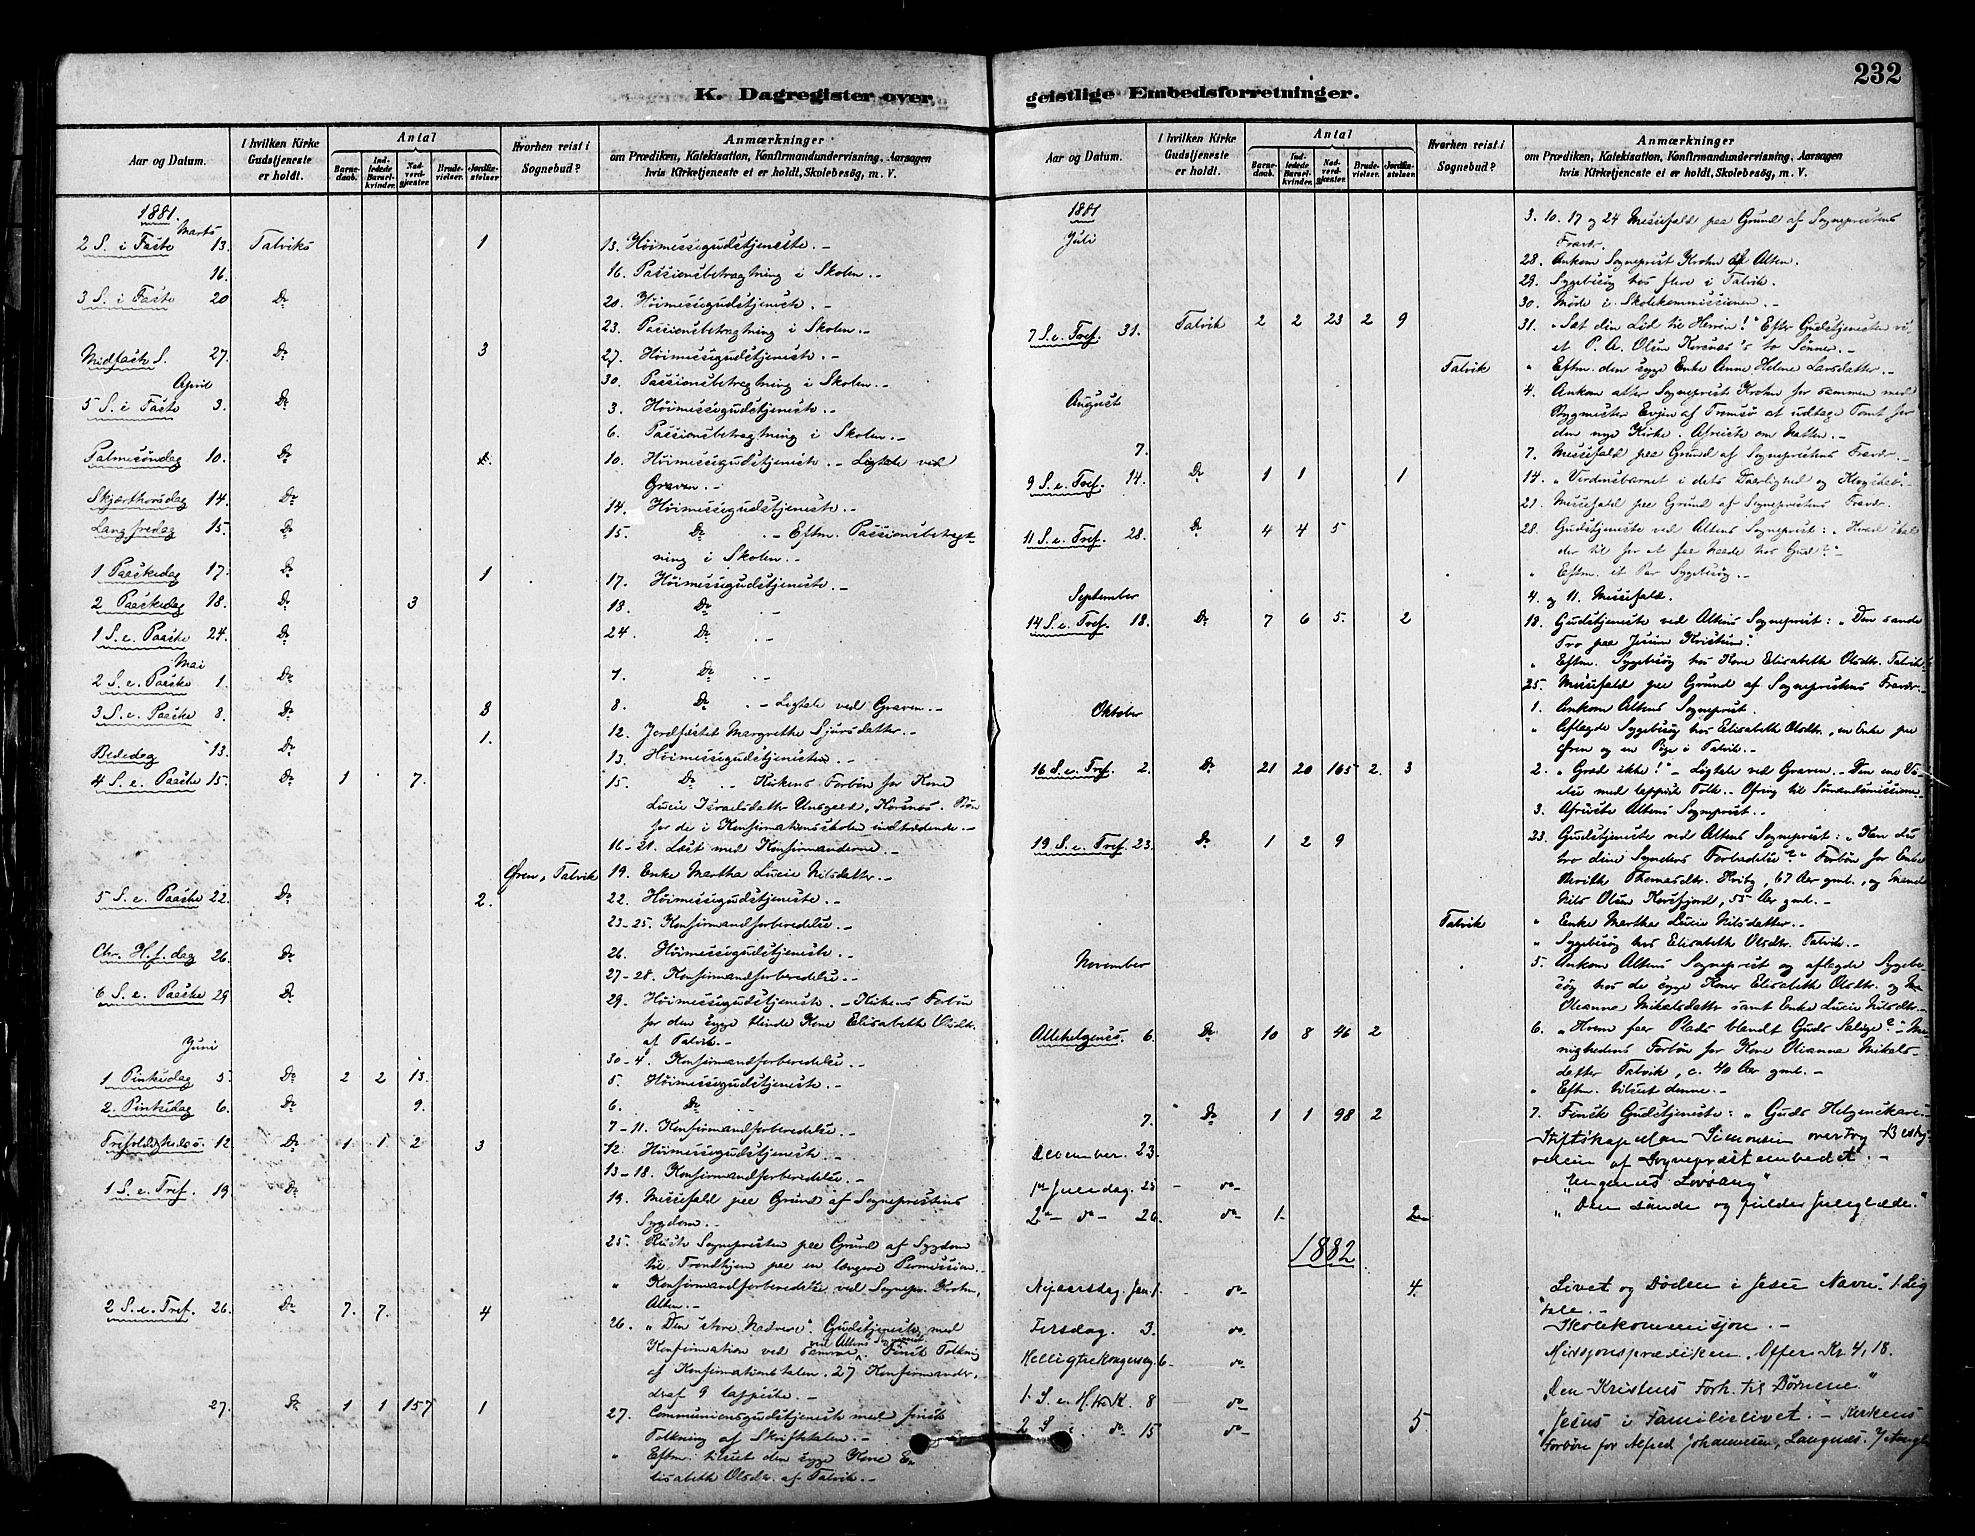 232
K. Dagregister over
geistlige Embedsforretninger.
Aar og Datum.
I hvilken Kirke Gudstjeneste er holdt.
Antal
Barnedaab.
Indledede Barselkvinder.
Nadverdgjester.
Brudevielser.
Jordfæstelser
Hvorhen reist i Sognebud?
Anmærkninger
om Prædiken, Katekisation, Konfirmandundervisning, Aarsagen
hvis Kirketjeneste ei er holdt, Skolebesøg, m. V.
1881.
Marts
2 S. i Faste 13. Talviks 1 13. Höimessegudstjeneste. -
16. 16. Passionsbetragtning i Skolen. -
3 S. i Faste 20 Do 20. Höimessegudstjeneste. -
23. Passionsbetragtning i Skolen. -
Midfaste S. 27. Do 3 27. Höimessegudstjeneste. -
30. Passionsbetragtning i Skolen. -
April
5 S. i Faste 3. Do 3. Höimessegudstjeneste. -
6. Passionsbetragtning i Skolen. -
Palmesöndag 10. Do 10. Höimessegudstjeneste. - Ligtale ved
Graven. -
Skjærthorsdag 14. Do 14. Höimessegudstjeneste. -
Langfredag 15. Do 15. Do - Eftm. Passionsbetragt-
ning i Skolen. -
1 Paaskedag 17. Do 1 17. Höimessegudstjeneste. -
2 Paaskedag 18. Do 3 18. Do -
1 S. e. Paaske 24. Do 24. Do -
Mai
2 S. e. Paaske 1. Do 1. Do -
3 S. e. Paaske 8. Do 3 8. Do - Ligtale ved Graven. -
1. 12. Jordfæstet Margrethe Sjursdatter. -
Bededag 13. Do 13. Höimessegudstjeneste.
4 S. e. Paaske 15. Do 1 7. 15. Do - Kirkens Forbön for Kone
Lucie Israelsdatter Unsgaard, Korsnes. Bön
for de i Konfirmationsskolen indtrædende. -
16-21. Læst med Konfirmanderne. -
Øren, Talvik 19. Enke Martha Lucie Nilsdatter. -
5 S. e. Paaske 22. Do 2. 22. Höimessegudstjeneste. -
23-25. Konfirmandforberedelse. -
Chr. H. f. dag 26. Do 26. Höimessegudstjeneste. -
27-28. Konfirmandforberedelse. -
6 S. e. Paaske 29 Do 29. Höimessegudstjeneste. - Kirkens Forbön
for den syge blinde Kone Elisabeth Olsdtr.
af Talvik. -
Juni
30-4. Konfirmandforberedelse. -
1 Pintsedag 5. Do 2 2 13. 5. Höimessegudstjeneste. -
2. Pintsedag 6. Do 9. 6. Do
7-11. Konfirmandforberedelse. -
Trefoldighedss. 12. Do 1 1 2 3 12. Höimessegudstjeneste. -
13-18. Konfirmandforberedelse. -
1 S. e. Tref. 19. Do 19. Messefald paa Grund af Sogneprestens
Sygdom. -
25. Reiste Sognepresten paa Grund af Sygdom
til Trondhjem paa en længere Permission. -
" Konfirmandforberedelse ved Sognepr. Krohn,
Alten. -
2 S. e. Tref. 26. Do 7. 7. 4 26. "Den store Nadvere". Gudstjeneste med
Konfirmation ved samme ved Altens Sogneprest. Finsk Tolkning
af Konfirmationstalen. 27 Konfirmander,
deraf 9 lappiske. -
27. Do 1 1 157 1 27. Communionsgudstjeneste med finsk
Tolkning af Skriftetalen. -
" Eftm. tilseet den syge Kone E-
lisabeth Olsdtr. af Talvik. -
Aar og Datum.
I hvilken Kirke Gudstjeneste er holdt.
Antal
Barnedaab.
Indledede Barselkvinder.
Nadverdgjester.
Brudevielser.
Jordfæstelser.
Hvorhen reist i Sognebud?
Anmærkninger
om Prædiken, Katekisation, Konfirmandundervisning, Aarsagen
hvis Kirketjeneste ei er holdt, Skolebesøg, m. V.
1881
Juli
3. 10. 17 og 24 Messefald paa Grund af Sogneprestens
Fravær.
28. Ankom Sogneprest Krohn af Alten.
29. Sygebesög hos flere i Talvik.
30. Möde i Skolekommissionen. -
7 S. e. Tref. 31. Talvik 2 2 23 2 9 31. "Sæt din Lid til Herren!" Efter Gudstjenesten vi-
et P. A. Olsen Korsnæs's to Sönner. -
Talvik " Eftm. den syge Enke Anne Helene Larsdatter. -
August
4. Ankom atter Sogneprest Krohn for sammen med
Bygmester Evjen af Tromsö at udtage Tomt for
den nye Kirke. Afreiste om Natten. -
7. 7. Messefald paa Grund af Sogneprestens Fravær. -
9 S. e. Tref. 14. Do 1 1 1 14. "Verdensbarnet i dets Daarlighed og Klogskab". -
21. Messefald paa Grund af Sogneprestens Fravær. -
11 S. e. Tref. 28. Do 4 4 5 28. Gudstjeneste ved Altens Sogneprest: "Hvad skal
der til for at faa Naade hos Gud?" -
" Eftm. et Par Sygebesög. -
September
4. og 11. Messefald.
14 S. e. Tref. 18. Do 7 6 5. 2 18. Gudstjeneste ved Altens Sogneprest: "Den sande
Tro paa Jesum Kristum".
" Eftm. Sygebesög hos Kone Elisabeth Olsdtr. Talvik. -
25. Messefald paa Grund af Sogneprestens Fravær. -
Oktober
1. Ankom Altens Sogneprest.
" Aflagde Sygebesög hos Elisabeth Olsdtr., en Enke paa
Øren og en Pige i Talvik. -
16 S. e. Tref. 2. Do 21 20 165 2. 3 2. "Græd ikke!" - Ligtale ved Graven. - Den ene Vi-
else med lappisk Tolk. - Ofring til Sömandsmissionen.
3. Afreiste Altens Sogneprest. -
19 S. e. Tref. 23. Do 1 2 9 23. Gudstjeneste ved Altens Sogneprest: "Kan du
tro dine Synders Forladelse?" Forbön for Enke
Berith Thomasdtr. Kvitz, 67 Aar gml., og Mand
Nils Olsen Korsfjord, 55 Aar gml. -
Talvik " Enke Martha Lucie Nilsdatter. -
" Sygebesög hos Elisabeth Olsdtr. Talvik. -
November
5. Ankom Altens Sogneprest og aflagde Sygebe-
sög hos de syge Koner Elisabeth Olsdtr. og
Olianna Mikalsdatter samt Enke Lucie Nilsdtr. -
Allehelgenss. 6. Do 10 8 46 2 6. "Hvem faar Plads blandt Guds Salige?" - Me-
nighedens Forbön for Kone Olianna Mikals-
datter Talvik, c. 40 Aar gml. -
" Eftm. tilseet denne. -
7. Do 1 1 98 2 7. Finsk Gudstjeneste:
December. 23. Stiftskapellan Simonsen overtog Besty-
relsen af Sogneprestembedet". -
1ste Juledag. 25 - do - "Englenes Lovsang"
2den - do - 26. do 1. 2 "Den sande og fulde Juleglæde."
1882
Nytaarsdag. Jan. 1. - do 4. "Livet og Døden i Jesu Navn". 1. Lig-
tale. -
Tirsdag. 3. do Skolekommisjon. -
Helligtrekongersdg. 6 - do Missjonsprædiken. Offer Kr. 4,18.
1. S. e. H. tr. K. 8 do "Den Kristens Forh. til Børnene"
2 S. " do 15 do 5 "Jesus i Familielivet." - Kirkens
Forbön for Alfred Johannesen, Langnæs.